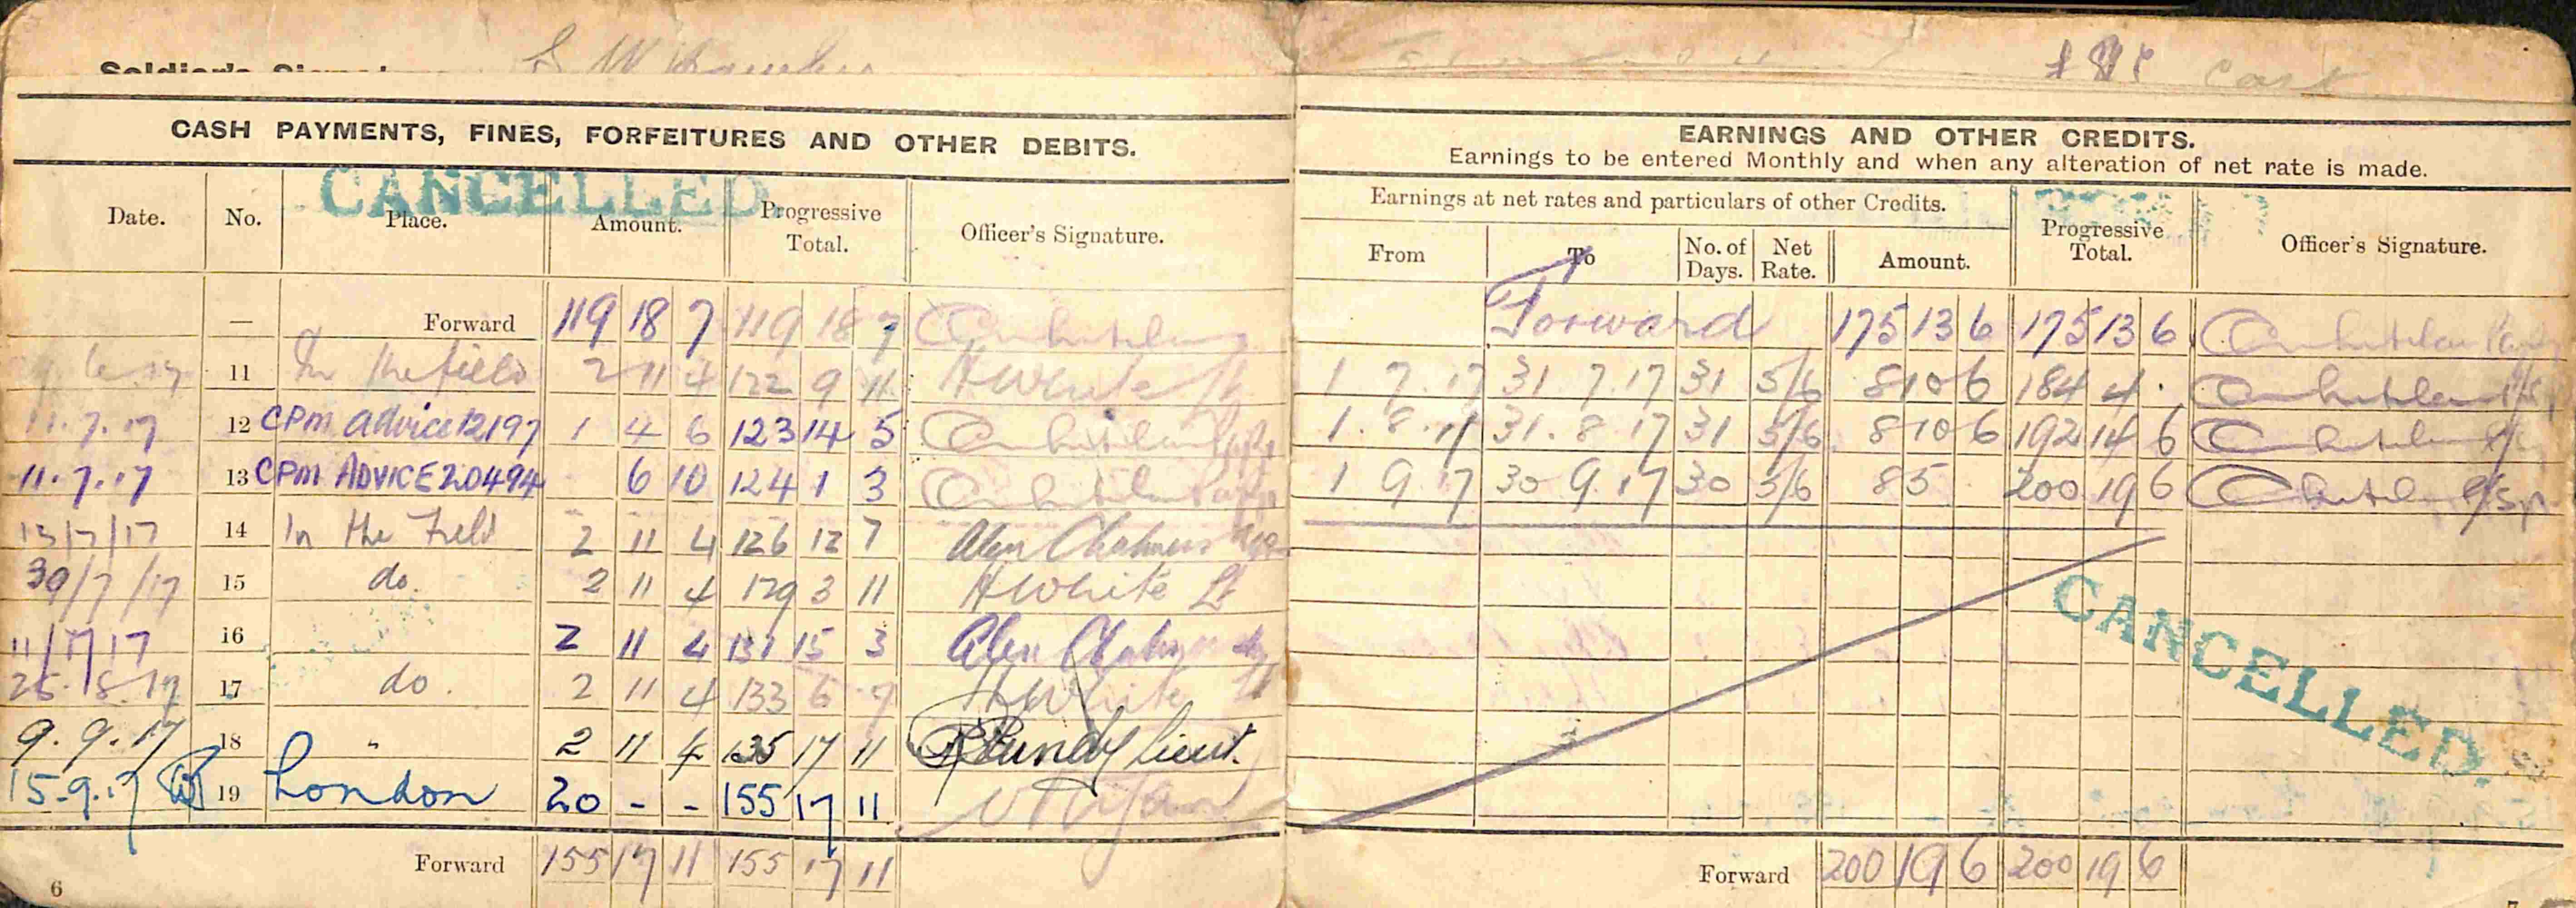 Soldier's
CASH PAYMENTS, FINES, FORFEITURES AND OTHER DEBITS.
CANCELLED
Date. No. Place. Amount. Progressive Total. Officer's Signature.
— Forward 119 18 7 119 18 7
11 In the field 2 11 4 122 9 11 H White Lt
11.7.17 12 CPM advice 12197 1 4 6 123 14 5
11.7.17 13 CPM ADVICE 20494 6 10 124 1 3
13/7/17 14 In the Field 2 11 4 126 12 7 Alex Chalmers
30/7/17 15 do. 2 11 4 129 3 11 H White Lt
16 2 11 4 131 15 3 Alex Chalmers
25.8.17 17 do. 2 11 4 133 6 9 H White Lt
9.9.17 18 " 2 11 4 135 17 11 Lieut.
15-9.17 19 London 20 - - 155 17 11
Forward 155 17 11 155 17 11
6
EARNINGS AND OTHER CREDITS.
Earnings to be entered Monthly and when any alteration of net rate is made.
Earnings at net rates and particulars of other Credits. Progressive Total. Officer's Signature.
From To No. of Days. Net Rate. Amount.
Forward 175 13 6 175 13 6
1 7.17 31 7.17 31 5/6 8 10 6 184 4 .
1.8.17 31.8 17 31 5/6 8 10 6 192 14 6
1 9 17 30 9.17 30 5/6 8 5 200 19 6
CANCELLED.
Forward 200 19 6 200 19 6